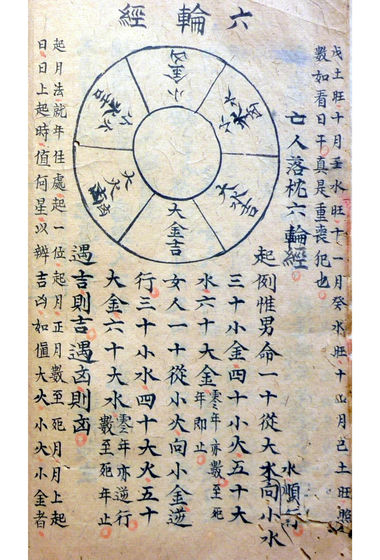 六輪經
戊土旺十月壬水旺十一月癸水旺十二月己土旺照
數如看日干真是重喪犯也
亡人落枕六輪經
水順行
起例惟男命一十從大水向小水
三十小金四十小火五十大
水六十大金零年亦數至死年即止
女人一十從小火向小金逆
行三十小水四十大火五十
大金六十大水零年亦逆行數至死年止
遇吉則吉遇凶則凶
起月法就年住處起一位起月正月數至死月月上起
日日上起時值何星以辨吉凶如值大火小火小金者
大金吉
大水吉
小金凶